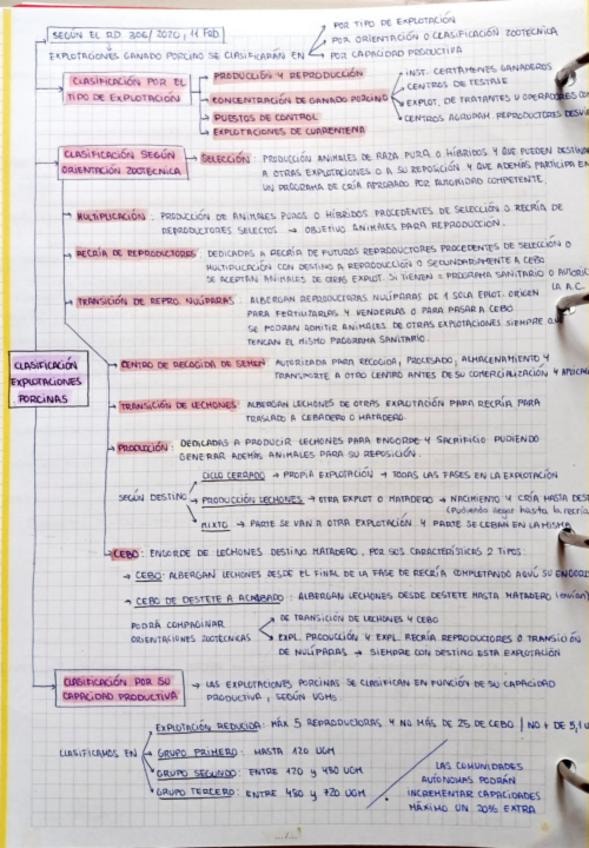 SEGÚN EL R.D. 306/2020, 11 FEB
EXPLOTACIONES GANADO PORCINO SE CLASIFICARÁN EN
POR TIPO DE EXPLOTACIÓN
POR ORIENTACIÓN O CLASIFICACIÓN ZOOTÉCNICA
POR CAPACIDAD PRODUCTIVA
CLASIFICACIÓN POR EL
TIPO DE EXPLOTACIÓN
PRODUCCIÓN Y REPRODUCCIÓN
CONCENTRACIÓN DE GANADO PORCINO
PUESTOS DE CONTROL
EXPLOTACIONES DE CUARENTENA
INST. CERTÁMENES GANADEROS
CENTROS DE TESTAJE
EXPLOT. DE TRATANTES U OPERADORES COM
CENTROS AGRUPAM. REPRODUCTORES DESVI
CLASIFICACIÓN SEGÚN
ORIENTACIÓN ZOOTECNICA
→ SELECCIÓN: PRODUCCIÓN ANIMALES DE RAZA PURA O HÍBRIDOS Y QUE PUEDEN DESTINAR
A OTRAS EXPLOTACIONES O A SU REPOSICIÓN Y QUE ADEMÁS PARTICIPA EN
UN PROGRAMA DE CRÍA APROBADO POR AUTORIDAD COMPETENTE.
MULTIPLICACIÓN: PRODUCCIÓN DE ANIMALES PUROS O HÍBRIDOS PROCEDENTES DE SELECCIÓN O RECRÍA DE
REPRODUCTORES SELECTOS → OBJETIVO ANIMALES PARA REPRODUCCIÓN.
RECRÍA DE REPRODUCTORES: DEDICADAS A RECRÍA DE FUTUROS REPRODUCTORES PROCEDENTES DE SELECCIÓN O
MULTIPLICACIÓN CON DESTINO A REPRODUCCIÓN O SECUNDARIAMENTE A CEBO
SE ACEPTAN ANIMALES DE OTRAS EXPLOT. SI TIENEN = PROGRAMA SANITARIO O AUTORIC
LA A.C.
TRANSICIÓN DE REPRO. NULÍPARAS: ALBERGAN REPRODUCTORAS NULÍPARAS DE 1 SOLA EPLOT. ORIGEN
PARA FERTILIZARLAS Y VENDERLAS O PARA PASAR A CEBO
SE PODRÁN ADMITIR ANIMALES DE OTRAS EXPLOTACIONES SIEMPRE QUE
TENGAN EL MISMO PROGRAMA SANITARIO.
CLASIFICACIÓN
EXPLOTACIONES
PORCINAS
CENTRO DE RECOGIDA DE SEMEN: AUTORIZADA PARA RECOGIDA, PROCESADO, ALMACENAMIENTO Y
TRANSPORTE A OTRO CENTRO ANTES DE SU COMERCIALIZACIÓN Y APLICAC
TRANSICIÓN DE LECHONES: ALBERGAN LECHONES DE OTRAS EXPLOTACIÓN PARA RECRÍA PARA
TRASLADO A CEBADERO O MATADERO.
PRODUCCIÓN: DEDICADAS A PRODUCIR LECHONES PARA ENGORDE Y SACRIFICIO PUDIENDO
GENERAR ADEMÁS ANIMALES PARA SU REPOSICIÓN.
SEGÚN DESTINO
CICLO CERRADO → PROPIA EXPLOTACIÓN → TODAS LAS FASES EN LA EXPLOTACIÓN
PRODUCCIÓN LECHONES → OTRA EXPLOT O MATADERO → NACIMIENTO Y CRÍA HASTA DEST
(Pudiendo llegar hasta la recría
MIXTO → PARTE SE VAN A OTRA EXPLOTACIÓN Y PARTE SE CEBAN EN LA MISMA
CEBO: ENGORDE DE LECHONES DESTINO MATADERO, POR SUS CARACTERÍSTICAS 2 TIPOS:
→ CEBO: ALBERGAN LECHONES DESDE EL FINAL DE LA FASE DE RECRÍA COMPLETANDO AQUÍ SU ENGORD
→ CEBO DE DESTETE A ACABADO: ALBERGAN LECHONES DESDE DESTETE HASTA MATADERO (envían)
PODRÁ COMPAGINAR
ORIENTACIONES ZOOTÉCNICAS
DE TRANSICIÓN DE LECHONES Y CEBO
EXPL. PRODUCCIÓN Y EXPL. RECRÍA REPRODUCTORES O TRANSICIÓN
DE NULÍPARAS → SIEMPRE CON DESTINO ESTA EXPLOTACIÓN
CLASIFICACIÓN POR SU
CAPACIDAD PRODUCTIVA
→ LAS EXPLOTACIONES PORCINAS SE CLASIFICAN EN FUNCIÓN DE SU CAPACIDAD
PRODUCTIVA, SEGÚN UGMs.
CLASIFICAMOS EN
EXPLOTACIÓN REDUCIDA: MÁX 5 REPRODUCTORAS Y NO MÁS DE 25 DE CEBO | NO + DE 5,1 U
GRUPO PRIMERO: HASTA 120 UGM
GRUPO SEGUNDO: ENTRE 120 y 480 UGM
GRUPO TERCERO: ENTRE 480 y 720 UGM
LAS COMUNIDADES
AUTÓNOMAS PODRÁN
INCREMENTAR CAPACIDADES
MÁXIMO UN 20% EXTRA
.../...